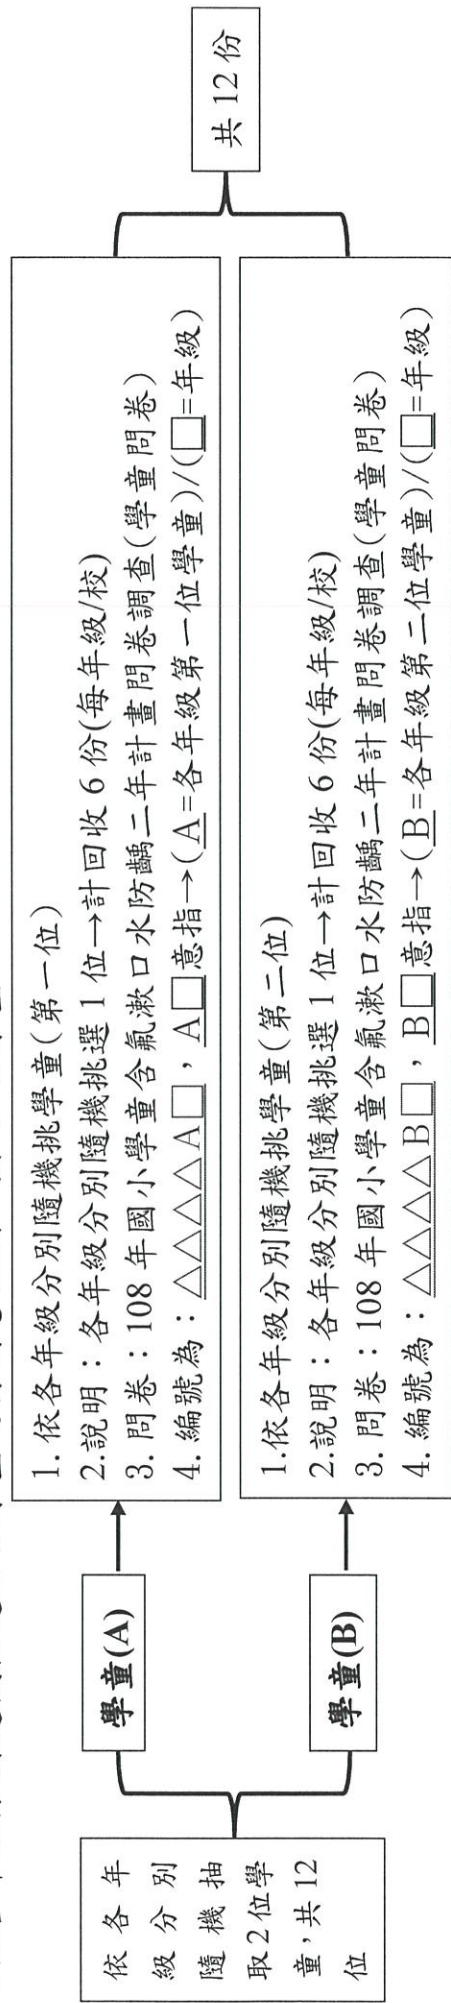 依各年
級分別
隨機抽
取2位學
童，共12
位
學童(A)
1.依各年級分別隨機挑學童(第一位)
2.說明：各年級分別隨機挑選1位→計回收6份(每年級/校)
3. 問卷：108年國小學童含氟漱口水防齲二年計畫問卷調查(學童問卷)
4. 編號為：△△△△△A□，A□意指→(A=各年級第一位學童)/(□=年級)
學童(B)
1.依各年級分別隨機挑學童(第二位)
2.說明：各年級分別隨機挑選1位→計回收6份(每年級/校)
3. 問卷：108年國小學童含氟漱口水防齲二年計畫問卷調查(學童問卷)
4. 編號為：△△△△△B□，B□意指→(B=各年級第二位學童)/(□=年級)
共12份